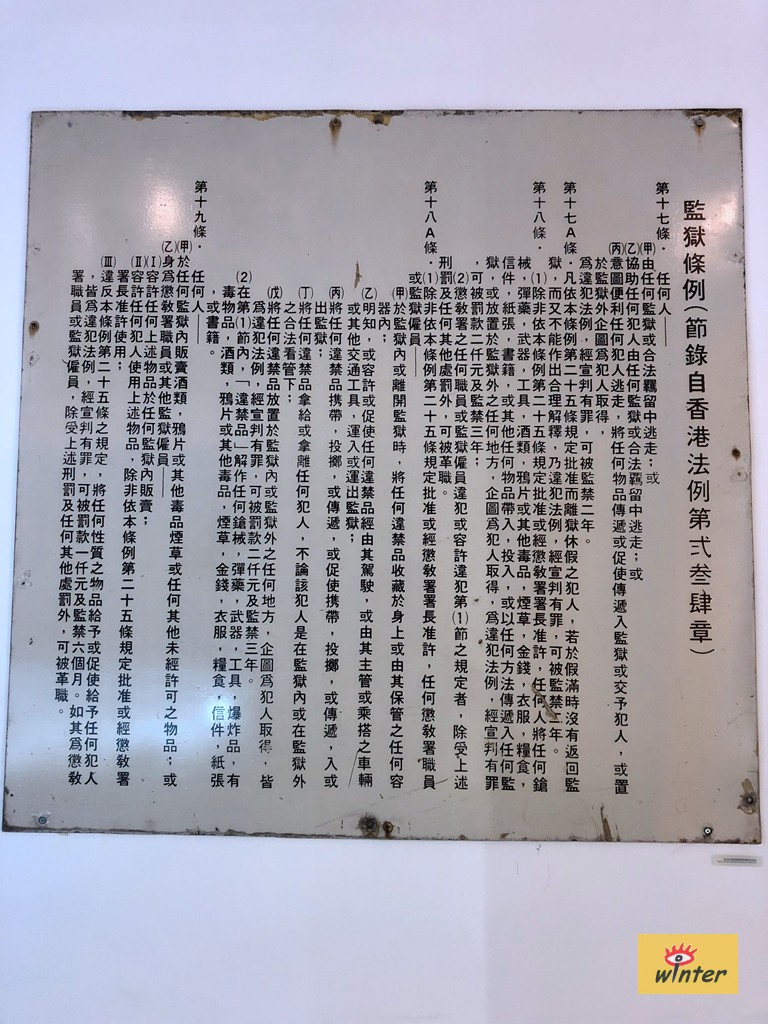 監獄條例(節錄自香港法例第弍叁肆章)
第十七條.任何人——
㈙由任何監獄或合法羈留中逃走;或
㈚協助任何犯人由任何監獄或合法羈留中逃走;或
㈛意圖便利任何犯人逃走,將任何物品傳遞或促使傳遞入監獄或交予犯人,或置
於監獄外企圖爲犯人取得,
爲違犯法例,經宣判有罪,可被監禁二年。
第十七A條.凡依本條例第二十五條規定批准而離獄休假之犯人,若於假滿時沒有返回監
獄,而又不能作出合理解釋,乃違犯法例,經宣判有罪,可被監禁一年。
第十八條.⑴除非依本條例第二十五條規定批准或經懲敎署署長准許,任何人將任何鎗
械,彈藥,武器,工具,酒類,鴉片或其他毒品,煙草,金錢,衣服,糧食,
信件,紙張,書籍,或其他任何物品帶入,投入,或以任何方法傳遞入任何監
獄,或放置於監獄外之任何地方,企圖爲犯人取得,爲違犯法例,經宣判有罪
,可被罰款二仟元及監禁三年;
⑵懲敎署之任何職員或監獄僱員違犯或容許違犯第⑴節之規定者,除受上述
刑罰及任何其他處罰外,可被革職。
第十八A條.⑴除非依本條例第二十五條規定批准或經懲敎署署長准許,任何懲敎署職員
或監獄僱員——
㈙於監獄內或離開監獄時,將任何違禁品收藏於身上或由其保管之任何容
器內;
㈚明知,或容許或促使任何違禁品經由其駕駛,或由其主管或乘搭之車輛
或其他交通工具,運入或運出監獄;
㈛將任何違禁品携帶,投擲,或傳遞,或促使携帶,投擲,或傳遞,入或
出監獄;
㈜將任何違禁品拿給或拿離任何犯人,不論該犯人是在監獄內或在監獄外
之合法看管下;
㈝將任何違禁品放置於監獄內或監獄外之任何地方,企圖爲犯人取得,皆
爲違犯法例,經宣判有罪,可被罰款二仟元及監禁三年。
⑵在第⑴節內,「違禁品」解作任何鎗械,彈藥,武器,工具,爆炸品,有
毒物品,酒類,鴉片或其他毒品,煙草,金錢,衣服,糧食,信件,紙張
,或書籍。
第十九條.任何人——
㈙於任何監獄內販賣酒類,鴉片或其他毒品煙草或任何其他未經許可之物品;或
㈚身爲懲敎署職員或其他監獄僱員——
(I)容許任何上述物品於任何監獄內販賣;
(II)容許任何犯人使用上述物品,除非依本條例第二十五條規定批准或經懲敎署
署長准許使用;
(III)違反本條例第二十五條之規定,將任何性質之物品給予或促使給予任何犯人
,皆爲違犯法例,經宣判有罪,可被罰款一仟元及監禁六個月。如其爲懲敎
署職員或監獄僱員,除受上述刑罰及任何其他處罰外,可被革職。
winter